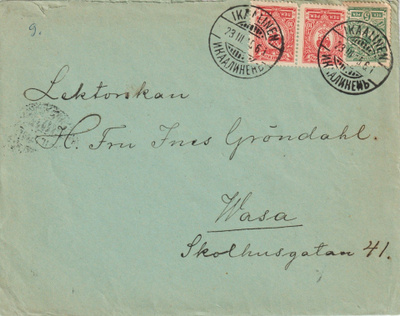 9.
IKAALINEN
ИКАЛИНЕНЪ
IKAALINEN
ИКАЛИНЕНЪ
Lektorskan
H. Fru Ines Gröndahl.
Wasa
Skolhusgatan 41.